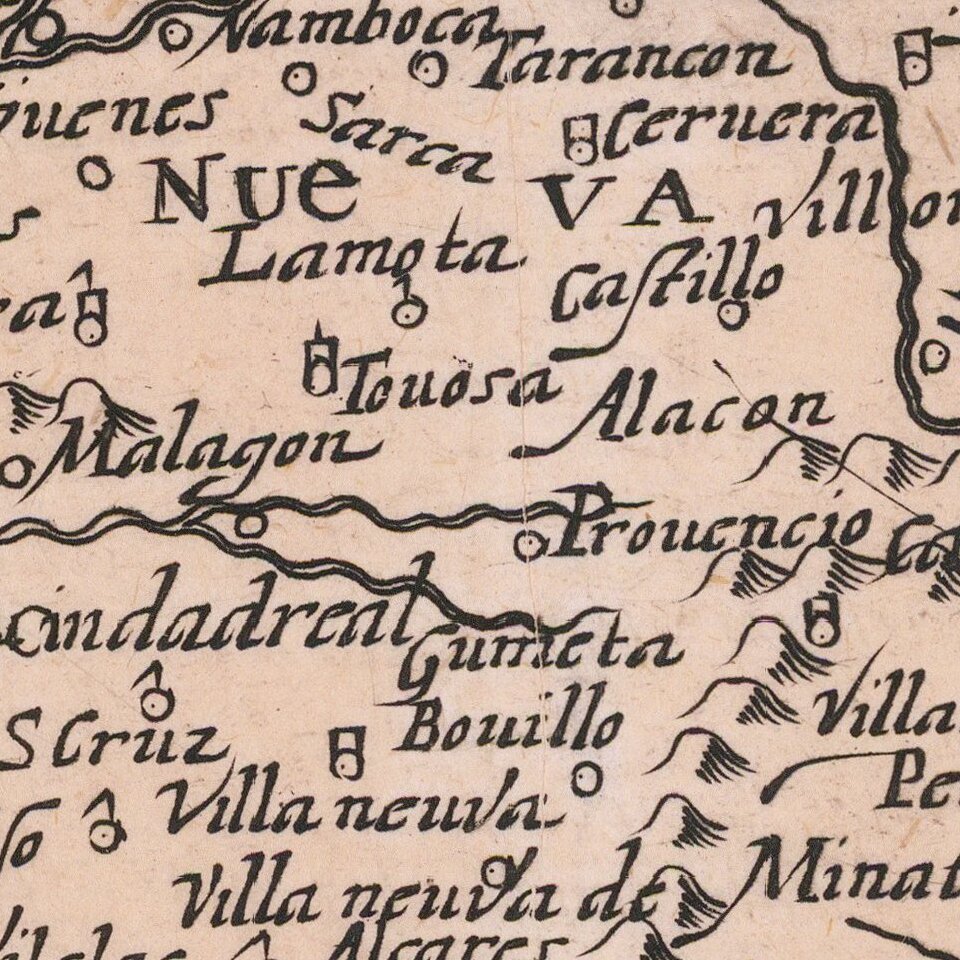 Namboca
Tarancon
guenes
Sarca
Ceruera
NUE VA
Lamota
Castillo
Touosa
Alacon
Malagon
Prouencio
Cindadreal
Gumeta
Bouillo
S Cruz
Villa neuva
Villa neuva de
Alcares
Villa
Pe
Minat